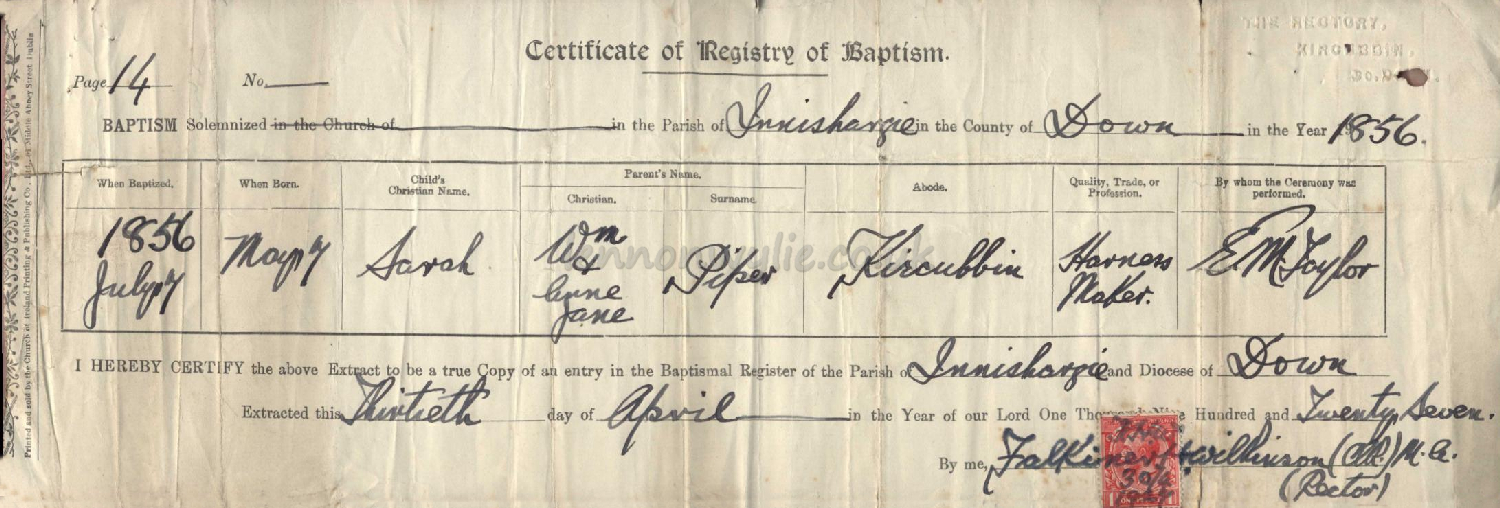 THE RECTORY,
KIRCUBBIN,
CO. DOWN.
Certificate of Registry of Baptism.
Page 14 No.
BAPTISM Solemnized in the Church of in the Parish of Innishargie in the County of Down in the Year 1856.
When Baptized. When Born. Child's Christian Name. Parent's Name. Christian. Surname. Abode. Quality, Trade, or Profession. By whom the Ceremony was performed.
1856 July 7 May 7 Sarah Wm & Anne Jane Piper Kircubbin Harness Maker. E M Taylor
I HEREBY CERTIFY the above Extract to be a true Copy of an entry in the Baptismal Register of the Parish of Innishargie and Diocese of Down
Extracted this Thirtieth day of April in the Year of our Lord One Thousand Nine Hundred and Twenty Seven.
By me, Wilkinson M.A.
(Rector)
30/4
1927
Printed and sold by the Church of Ireland Printing & Publishing Co., Ltd., Middle Abbey Street, Dublin